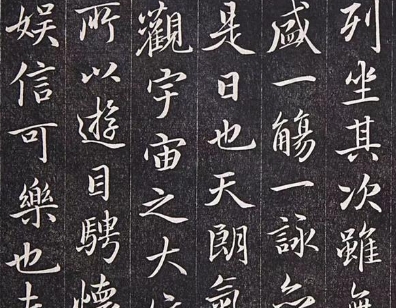 列坐其次雖無
盛一觴一詠
是日也天朗氣
觀宇宙之大
所以遊目騁懷
娛信可樂也